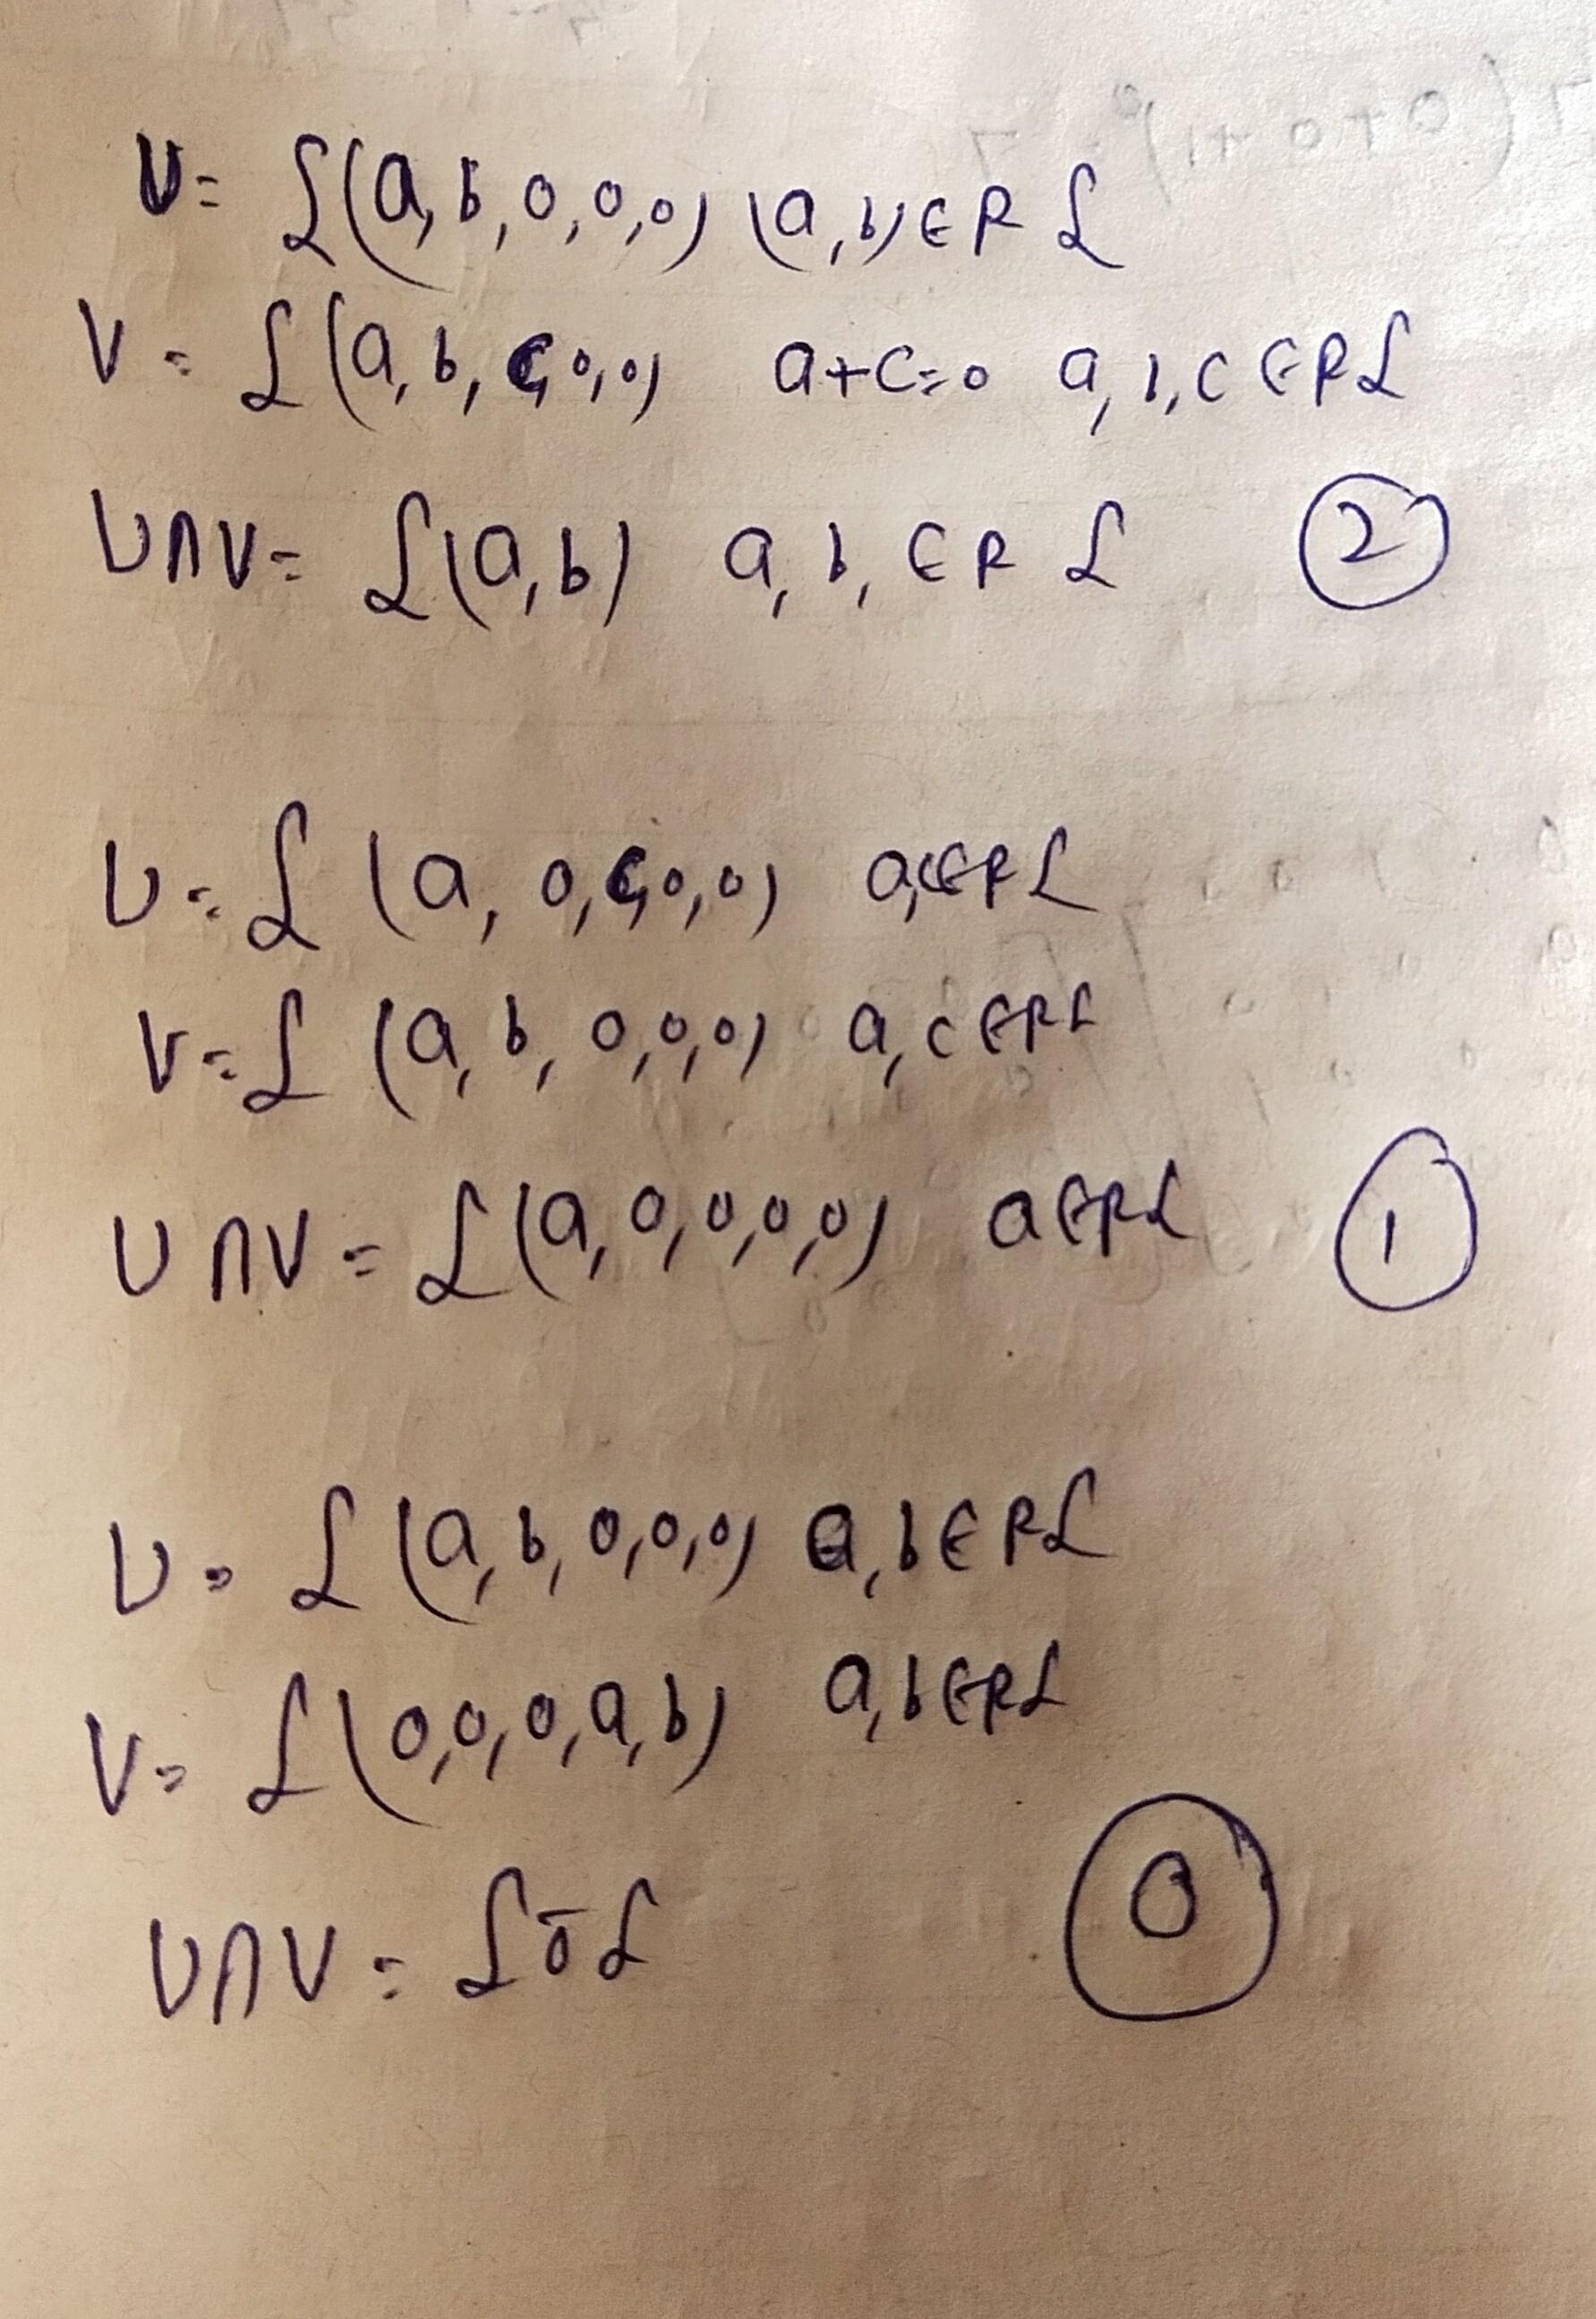 U= {(a,b,0,0,0) (a,b)∈R}
V= {(a,b,c,0,0) a+c=0 a,b,c∈R}
U∩V= {(a,b) a,b,∈R} 2
U= {(a,0,c,0,0) a,c∈R}
V= {(a,b,0,0,0) a,c∈R}
U∩V= {(a,0,0,0,0) a∈R} 1
U= {(a,b,0,0,0) a,b∈R}
V= {(0,0,0,a,b) a,b∈R}
U∩V= {ō} 0